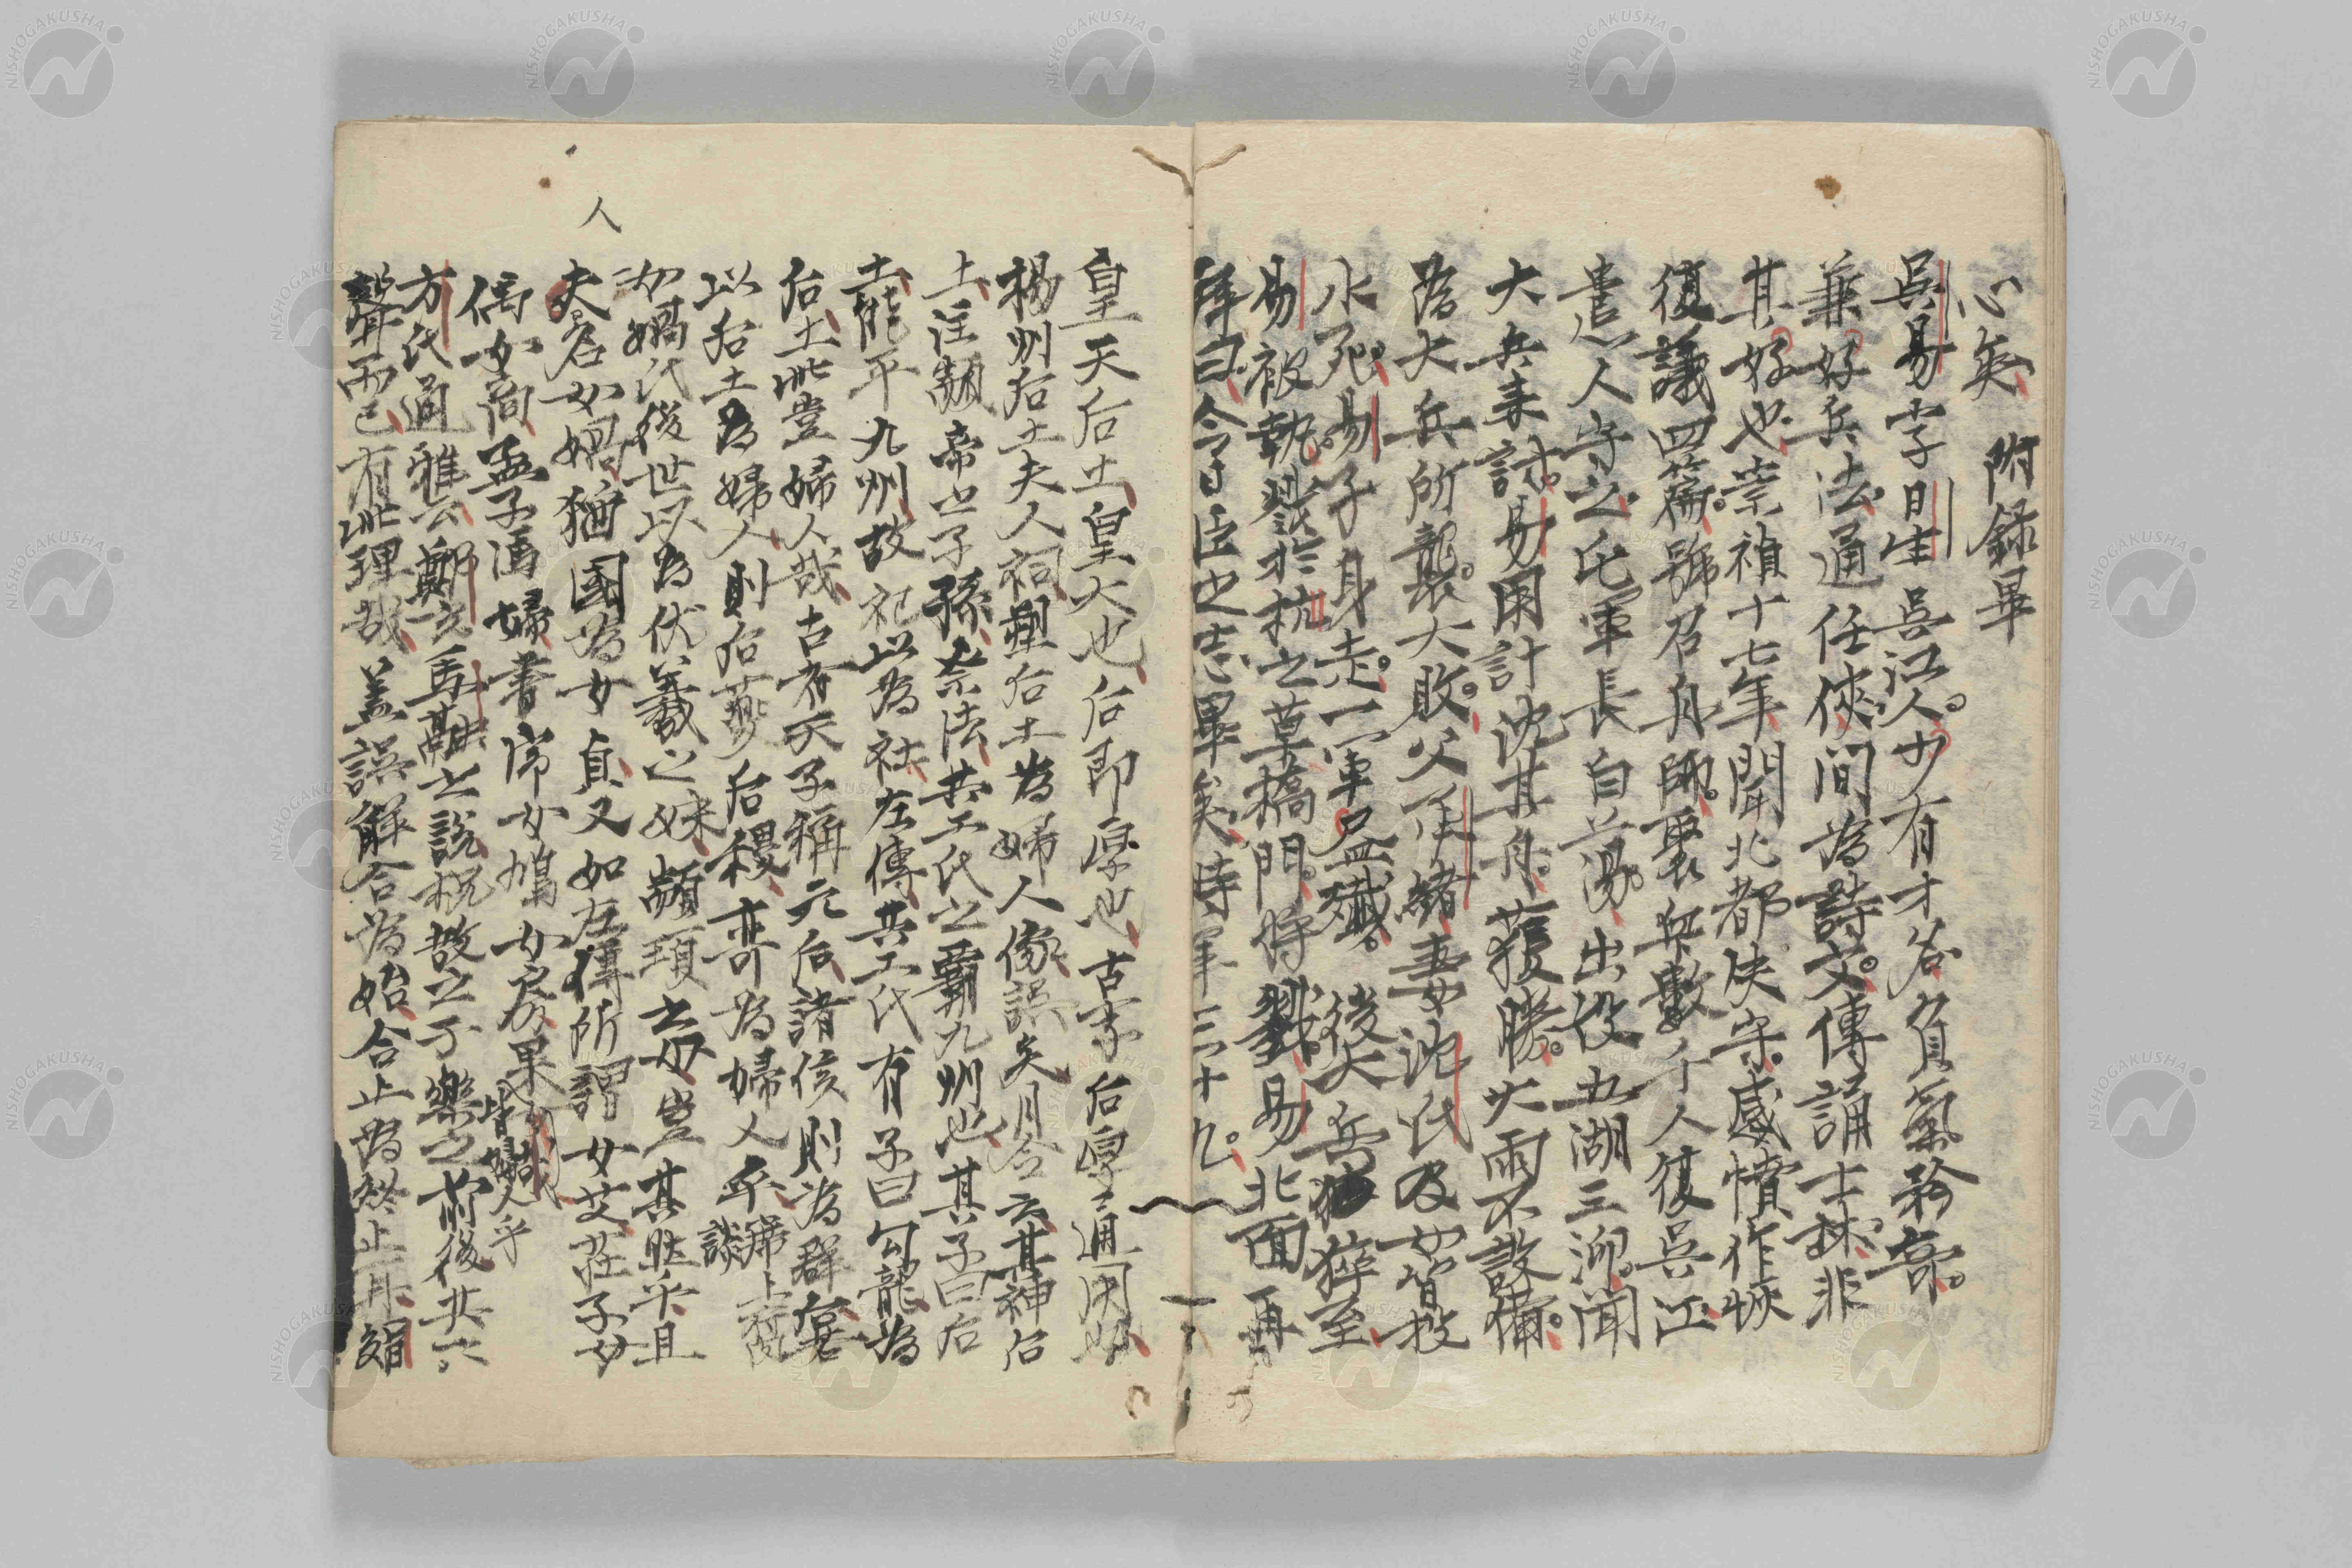 心矣　附録畢
呉昜字日生呉江人。少有才名負氣矜奇。
兼好兵法通任俠間為詩文。傳誦士林。非
其好也崇禎十七年聞北都失守。感憤作恢
復議四篇。號召舟師。裏兵數千人復呉江
遣人守之氐軍長白蕩。出没五湖三泖。聞
大兵来討。昜用計沈其舟。獲勝。大雨不設備。
為大兵所襲。大敗。父承緒妻沈氏及女皆投
水死。昜子身走。一軍盡殲。後大兵猝至
昜被執。繫於杭之草橋門。將戮昜北面再
拜曰今日臣之志畢矣。時年三十九。
皇天后土皇大也后即厚也古字后厚通用也
揚州后土夫人祠塑后土為婦人像誤矣月令云其神后
土注顓帝之子孫祭法共工氏之霸九州也其子曰后
土能平九州故祀以為社左傳共工氏有子曰勾龍為
后土此豈婦人哉古者天子稱元后諸侯則為群后
以后土為婦人則后夔后稷亦可為婦人乎
席上腐談
女媧氏後世以為伏羲之妹顓頊云女豈其然乎且
夫名女媧猶國為女貞又如左傳所謂女艾莊子女
偊女商孟子馮婦書序女鳩女房果皆婦人乎
方氏通雅云鄭玄馬融之說祝敔之于樂之前後共六
聲而已有此理哉盖誤解合為始合止為終止耳
人
NISHOGAKUSHA